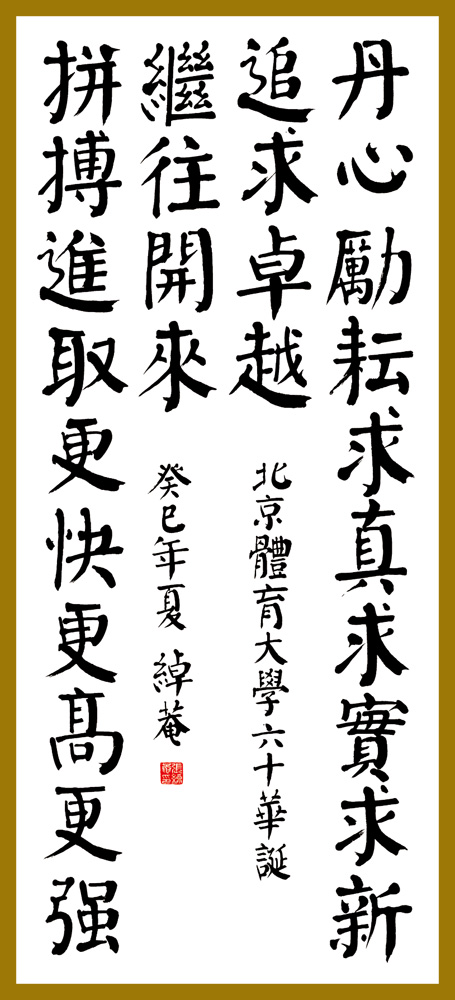 丹心勵耘求真求實求新
追求卓越
北京體育大學六十華誕
繼往開來
癸巳年夏 綽菴
拼搏進取更快更髙更强